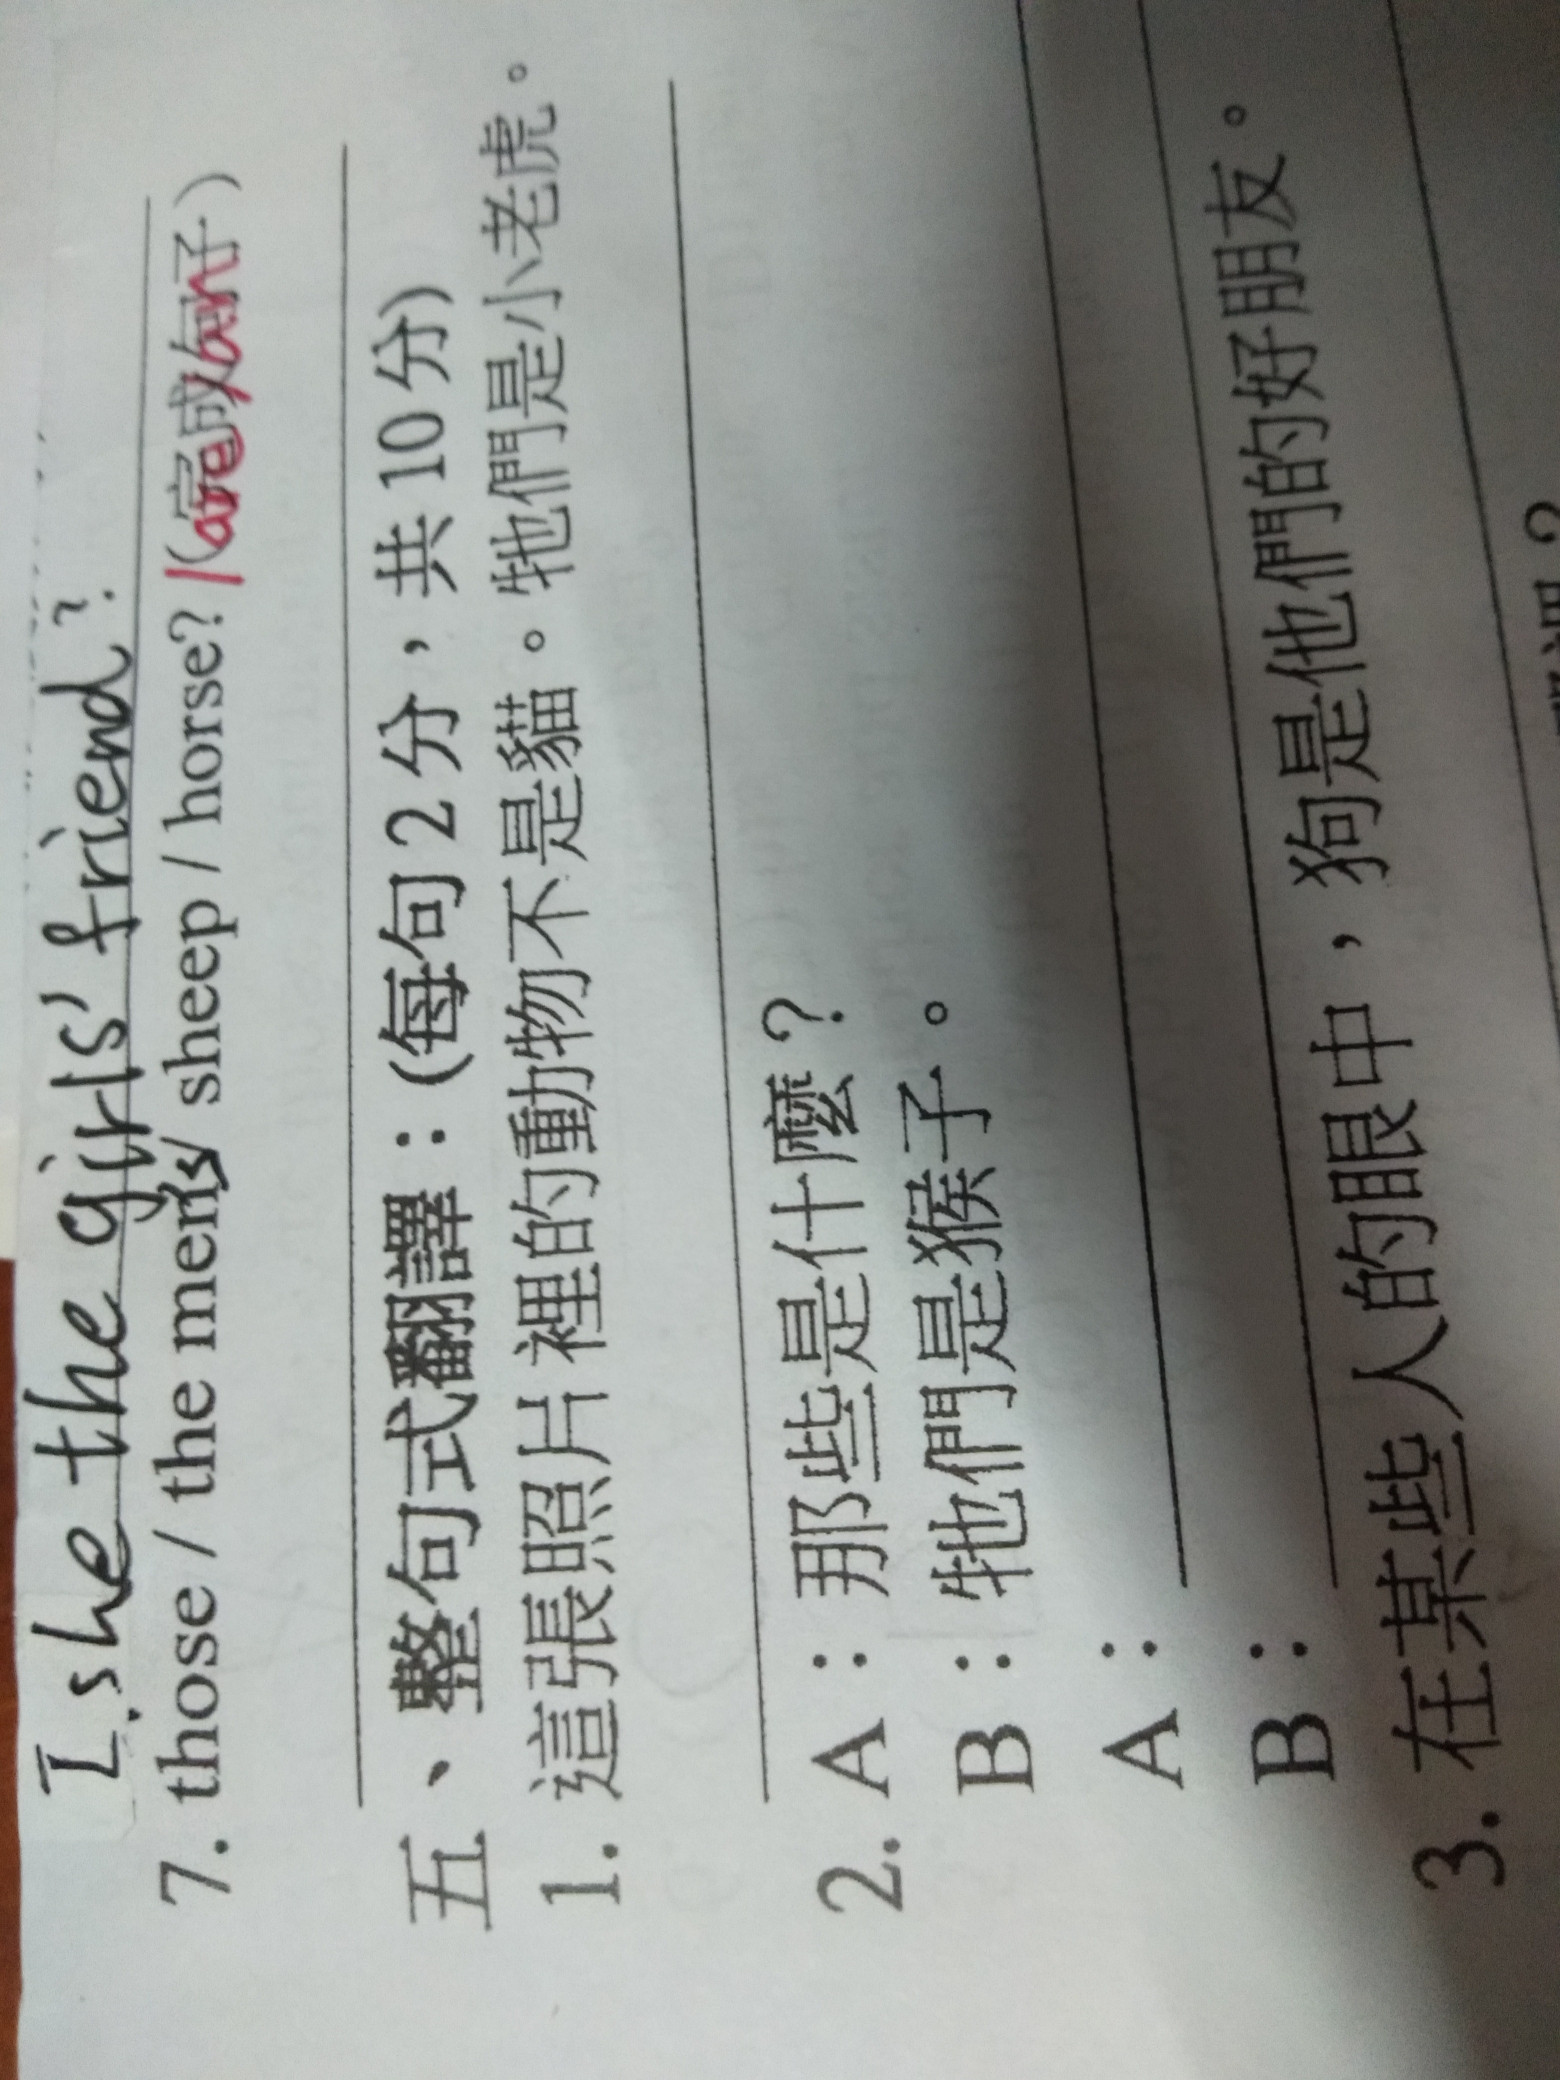 Is she the girls' friend?
7. those / the men's/ sheep / horse? / (完成句子) are/an
五、整句式翻譯：(每句2分，共10分)
1. 這張照片裡的動物不是貓。牠們是小老虎。
2. A：那些是什麼？
B：牠們是猴子。
A：
B：
3. 在某些人的眼中，狗是他們的好朋友。